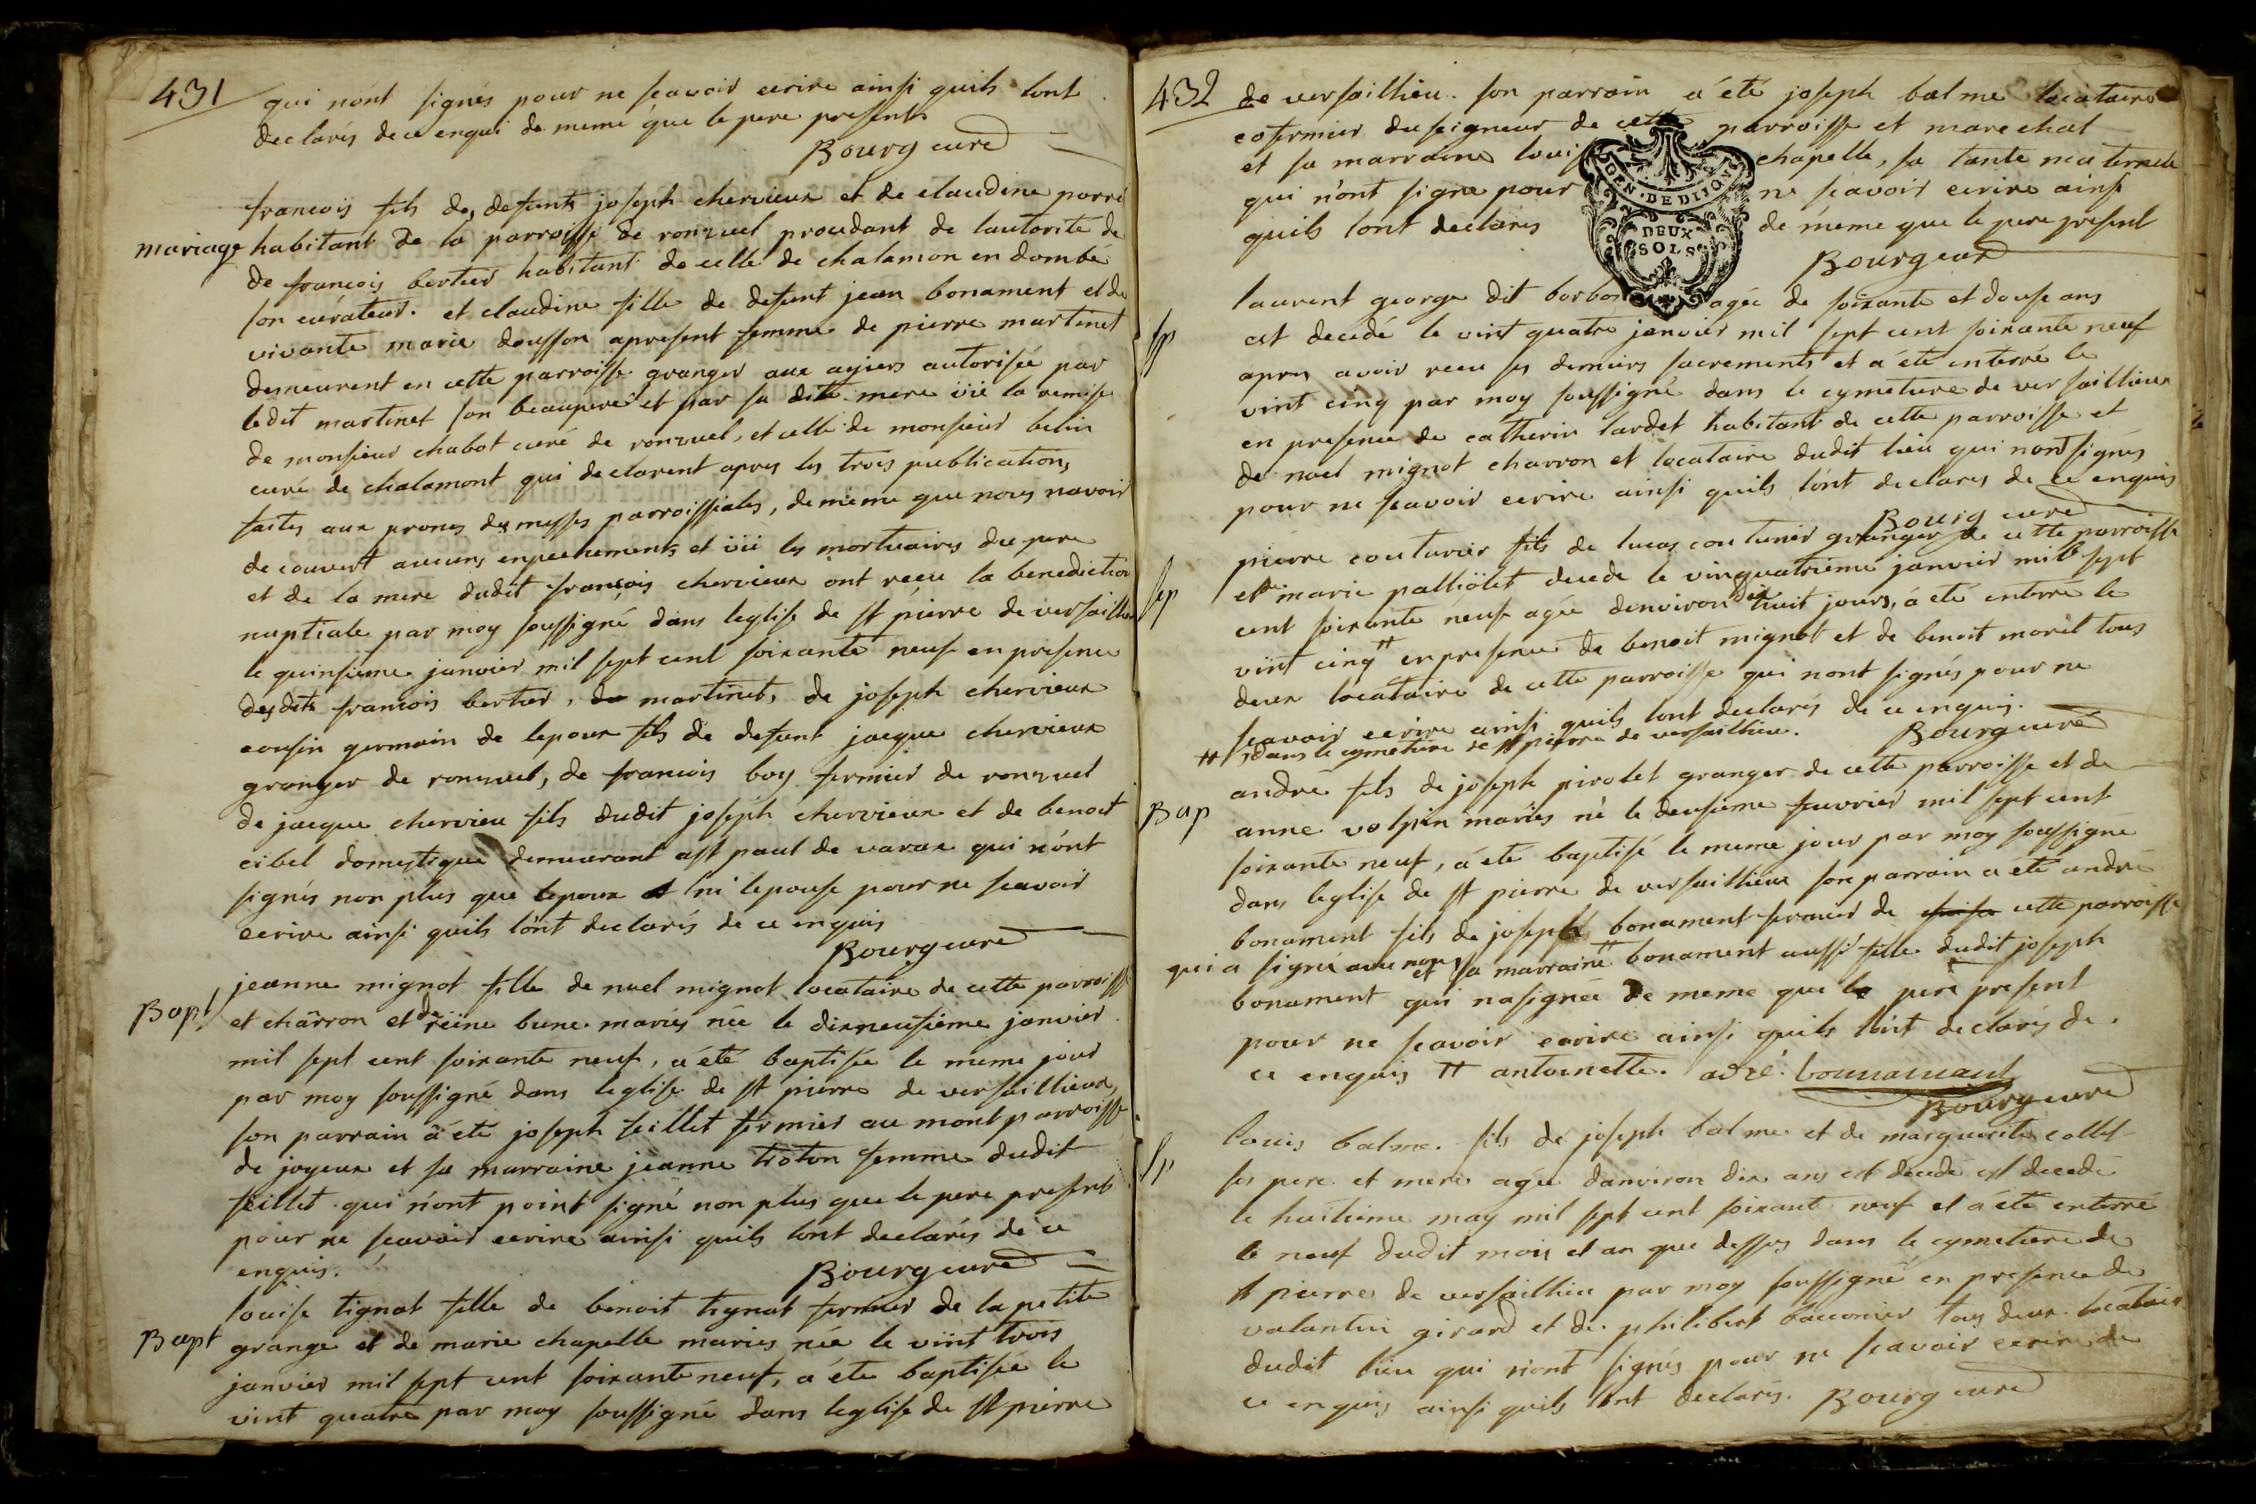 431
qui nónt signés pour ne scavoir ecrire ainsi quils lont
declarés de ce enqui de meme que le pere present
Bourg curé
mariage
francois fils des defunts joseph chervieux et de claudine porré
habitant de la parroisse de ronzuel proudant de lautorite de
de françois bertier habitant de celle de chalamon en dombé
son curateur. et claudine fille de defunt jean bonament et de
vivante marie dousson apresent femme de pierre martinet
demeurent en cette parroisse granger aux ayiers autorisée par
ledit martinet son beaupere et par sa dite mere vüe la remise
de monsieur chabot curé de ronzuel, et celle de monsieur belin
curé de chalamont qui declarent apres les trois publications
faites aux prones des messes parroissiales, de meme que nous navoir
decouvert aucuns enpechements et vüe les mortuaires du pere
et de la mere dudit françois chervieux ont recu la benediction
nuptiale par moy soussigné dans leglise de st pierre de versaillieu
le quinsieme janvier mil sept cent soixante neuf en presence
desdits francois bertier, de martinet, de joseph chervieux
cousin germain de lepoux fils de defunt jacque chervieux
granger de ronzuel, de francois boy fermier de ronzuel
de jacque chervieu fils dudit joseph chervieux et de benoit
cibel domestique demeurant a st paul de varax qui nónt
signés non plus que lepoux et ni lepouse pour ne scavoir
ecrire ainsi quils lónt declarés de ce enquis
Bourg curé
Bapt
jeanne mignot fille de nuel mignot locataire de cette parroisse
et charron et de reine bune mariés née le dixneusième janvier
mil sept cent soixante neuf, a été baptisée le meme jour
par moy soussigné dans leglise de st pierre de versaillieux,
son parrain a eté joseph feillet fermier au mont parroisse
de joyeux et sa marraine jeanne troton femme dudit
feillet qui nont point signé non plus que le pere present
pour ne scavoir ecrire ainsi quils lont declarés de ce
enquis.
Bourg curé
Bapt
louise tignat fille de benoit tignat fermier de la petite
grange et de marie chapelle mariés née le vint trois
janvier mil sept cent soixante neuf, a été baptisée le
vint quatre par moy soussigné dans leglise de st pierre
432
de versaillieu. son parrain a été joseph balme locataire
cofermier du seigneur de cette parroisse et marechal
et sa marraine louise chapelle, sa tante maternele
qui nont signe pour ne scavoir ecrire ainsi
quils lont declares de méme que le pere present
GEN. DE DIJON
DEUX
SOLS
Bourg curé
Sp
laurent george dit barbos agée de soixante et douse ans
est decedé le vint quatre janvier mil sept cent soixante neuf
apres avoir recu ses derniers sacrements et a été enterré le
vint cinq par moy soussigné dans le cymeture de versaillieux
en presence de catherin lardet habitant de cette parroisse et
de noel mignot charron et locataire dudit lieu qui nont signés
pour ne scavoir ecrire ainsi quils lónt declares de ce enquis
Bourg curé
Sep
pierre couturier fils de lucas couturier granger de cette parroisse
et marie palliölet decede le vinquatrieme janvier mil sept
cent soixante neuf agée denviron dix huit jours, a eté enterré le
vint cinq # en presence de benoit mignot et de benoit morel tous
deux locataire de cette parroisse qui nont signés pour ne
scavoir ecrire ainsi quils lont declarés de ce enquis.
# dans le cymetiere de st pierre de versaillieu.
Bourg curé
Bap
andré fils de joseph pirolet granger de cette parroisse et de
anne volpin mariés né le deusieme feuvrier mil sept cent
soixante neuf, a été baptisé le meme jour par moy soussigné
dans leglise de st pierre de versaillieux son parrain a été andré
bonament fils de joseph bonament fermier de cette parroisse
qui a signé avec nous et sa marraine # bonament aussi fille dudit joseph
bonament qui nasignée de meme que le pere present
pour ne scavoir ecrire ainsi quils lont declarés de.
ce enquis # antoinette. adré bounamant
Bourg curé
Sp
louis balme. fils de joseph balme et de marguerite collet
ses pere et mere agée danviron dix ans est decedé est decedé
le huitieme may mil sept cent soixante neuf et a été enterré
le neuf dudit mois et an que dessus dans le cymetiere de
st pierre de versaillieu par moy soussigné en presence de
valantin girard et de philibert baconier tous deux locataire
dudit lieu qui nont signés pour ne scavoir ecrire de
ce enquis ainsi quils lont declarés. Bourg curé